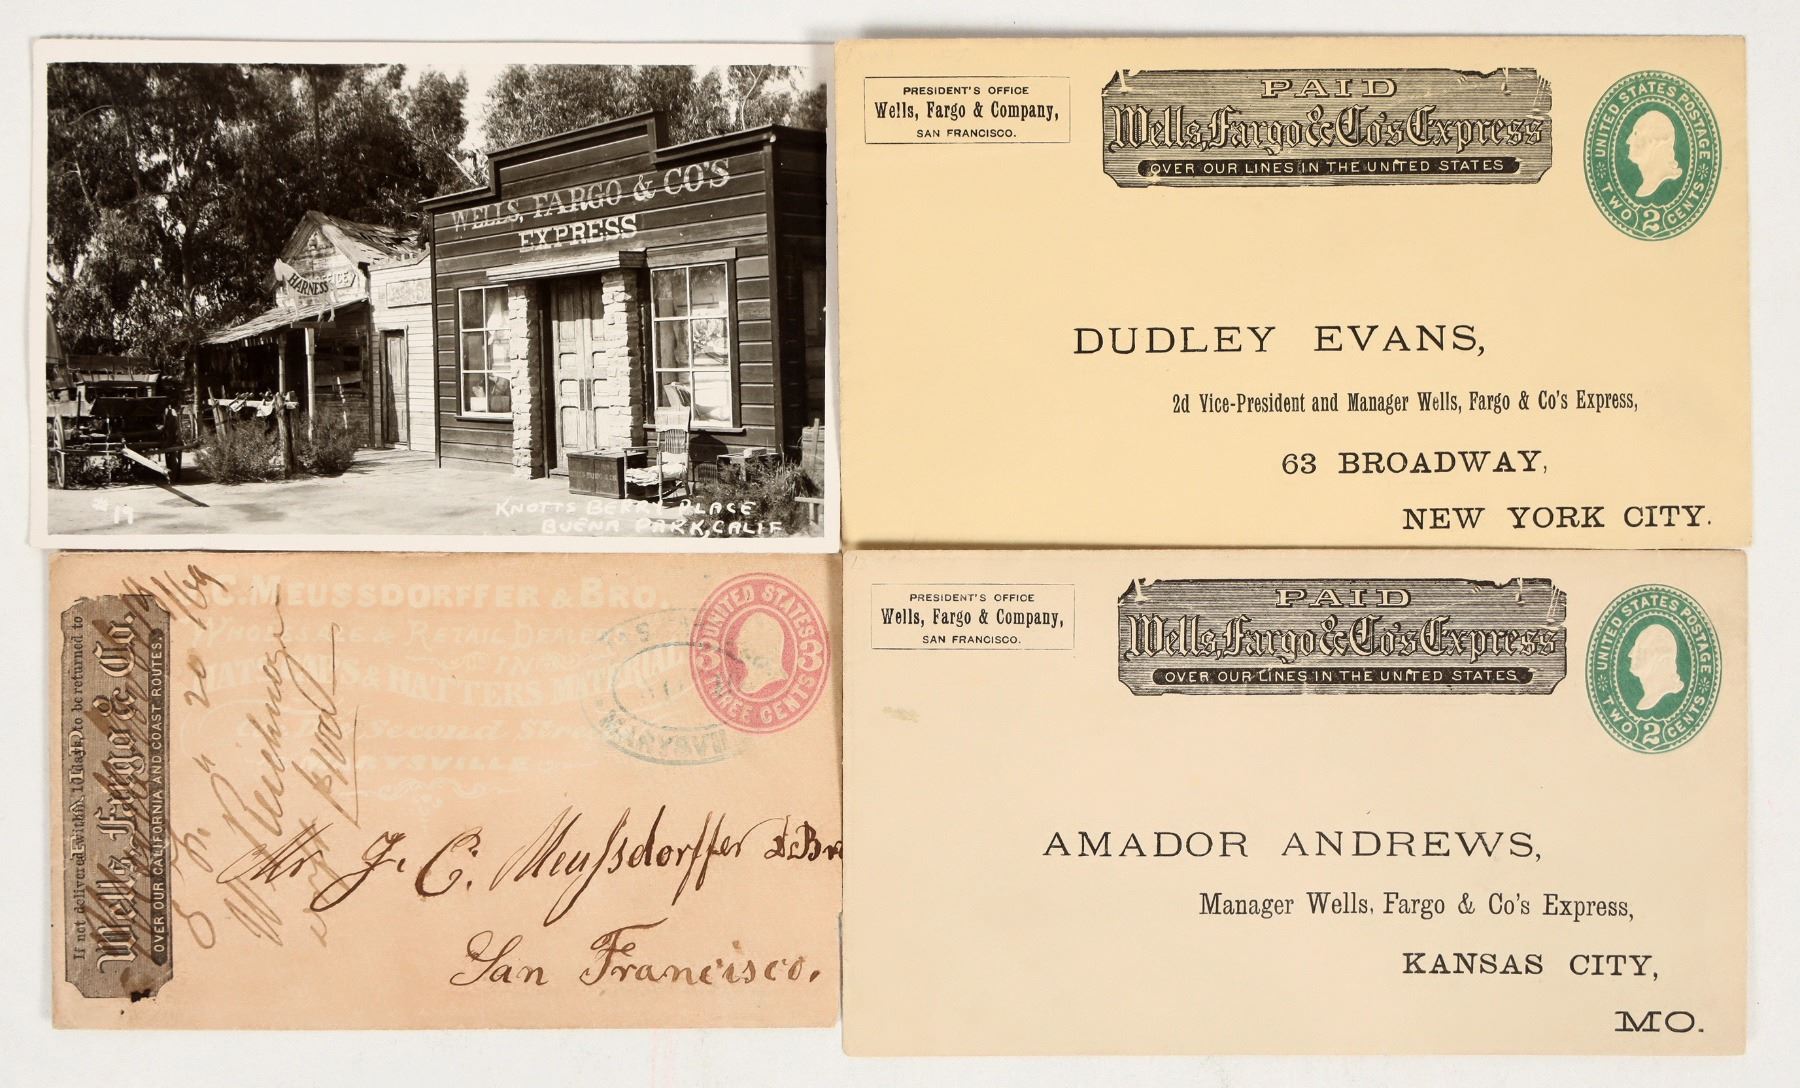 WELLS, FARGO & CO'S
EXPRESS
HARNESS
#19
KNOTTS BERRY PLACE
BUENA PARK, CALIF
PRESIDENT'S OFFICE
Wells, Fargo & Company,
SAN FRANCISCO.
PAID
Wells, Fargo & Co's Express
OVER OUR LINES IN THE UNITED STATES
UNITED STATES POSTAGE
TWO 2 CENTS
DUDLEY EVANS,
2d Vice-President and Manager Wells, Fargo & Co's Express,
63 BROADWAY,
NEW YORK CITY.
If not delivered within 10 days, to be returned to
Wells, Fargo & Co.
OVER OUR CALIFORNIA AND COAST ROUTES.
C. MEUSSDORFFER & BRO.
WHOLESALE & RETAIL DEALERS
IN
HATS CAPS & HATTERS MATERIALS
Second Street
MARYSVILLE
UNITED STATES
3 3
THREE CENTS
MARYSVILLE
Mr J. C. Meussdorffer & Bro
San Francisco.
PRESIDENT'S OFFICE
Wells, Fargo & Company,
SAN FRANCISCO.
PAID
Wells, Fargo & Co's Express
OVER OUR LINES IN THE UNITED STATES
UNITED STATES POSTAGE
TWO 2 CENTS
AMADOR ANDREWS,
Manager Wells, Fargo & Co's Express,
KANSAS CITY,
MO.